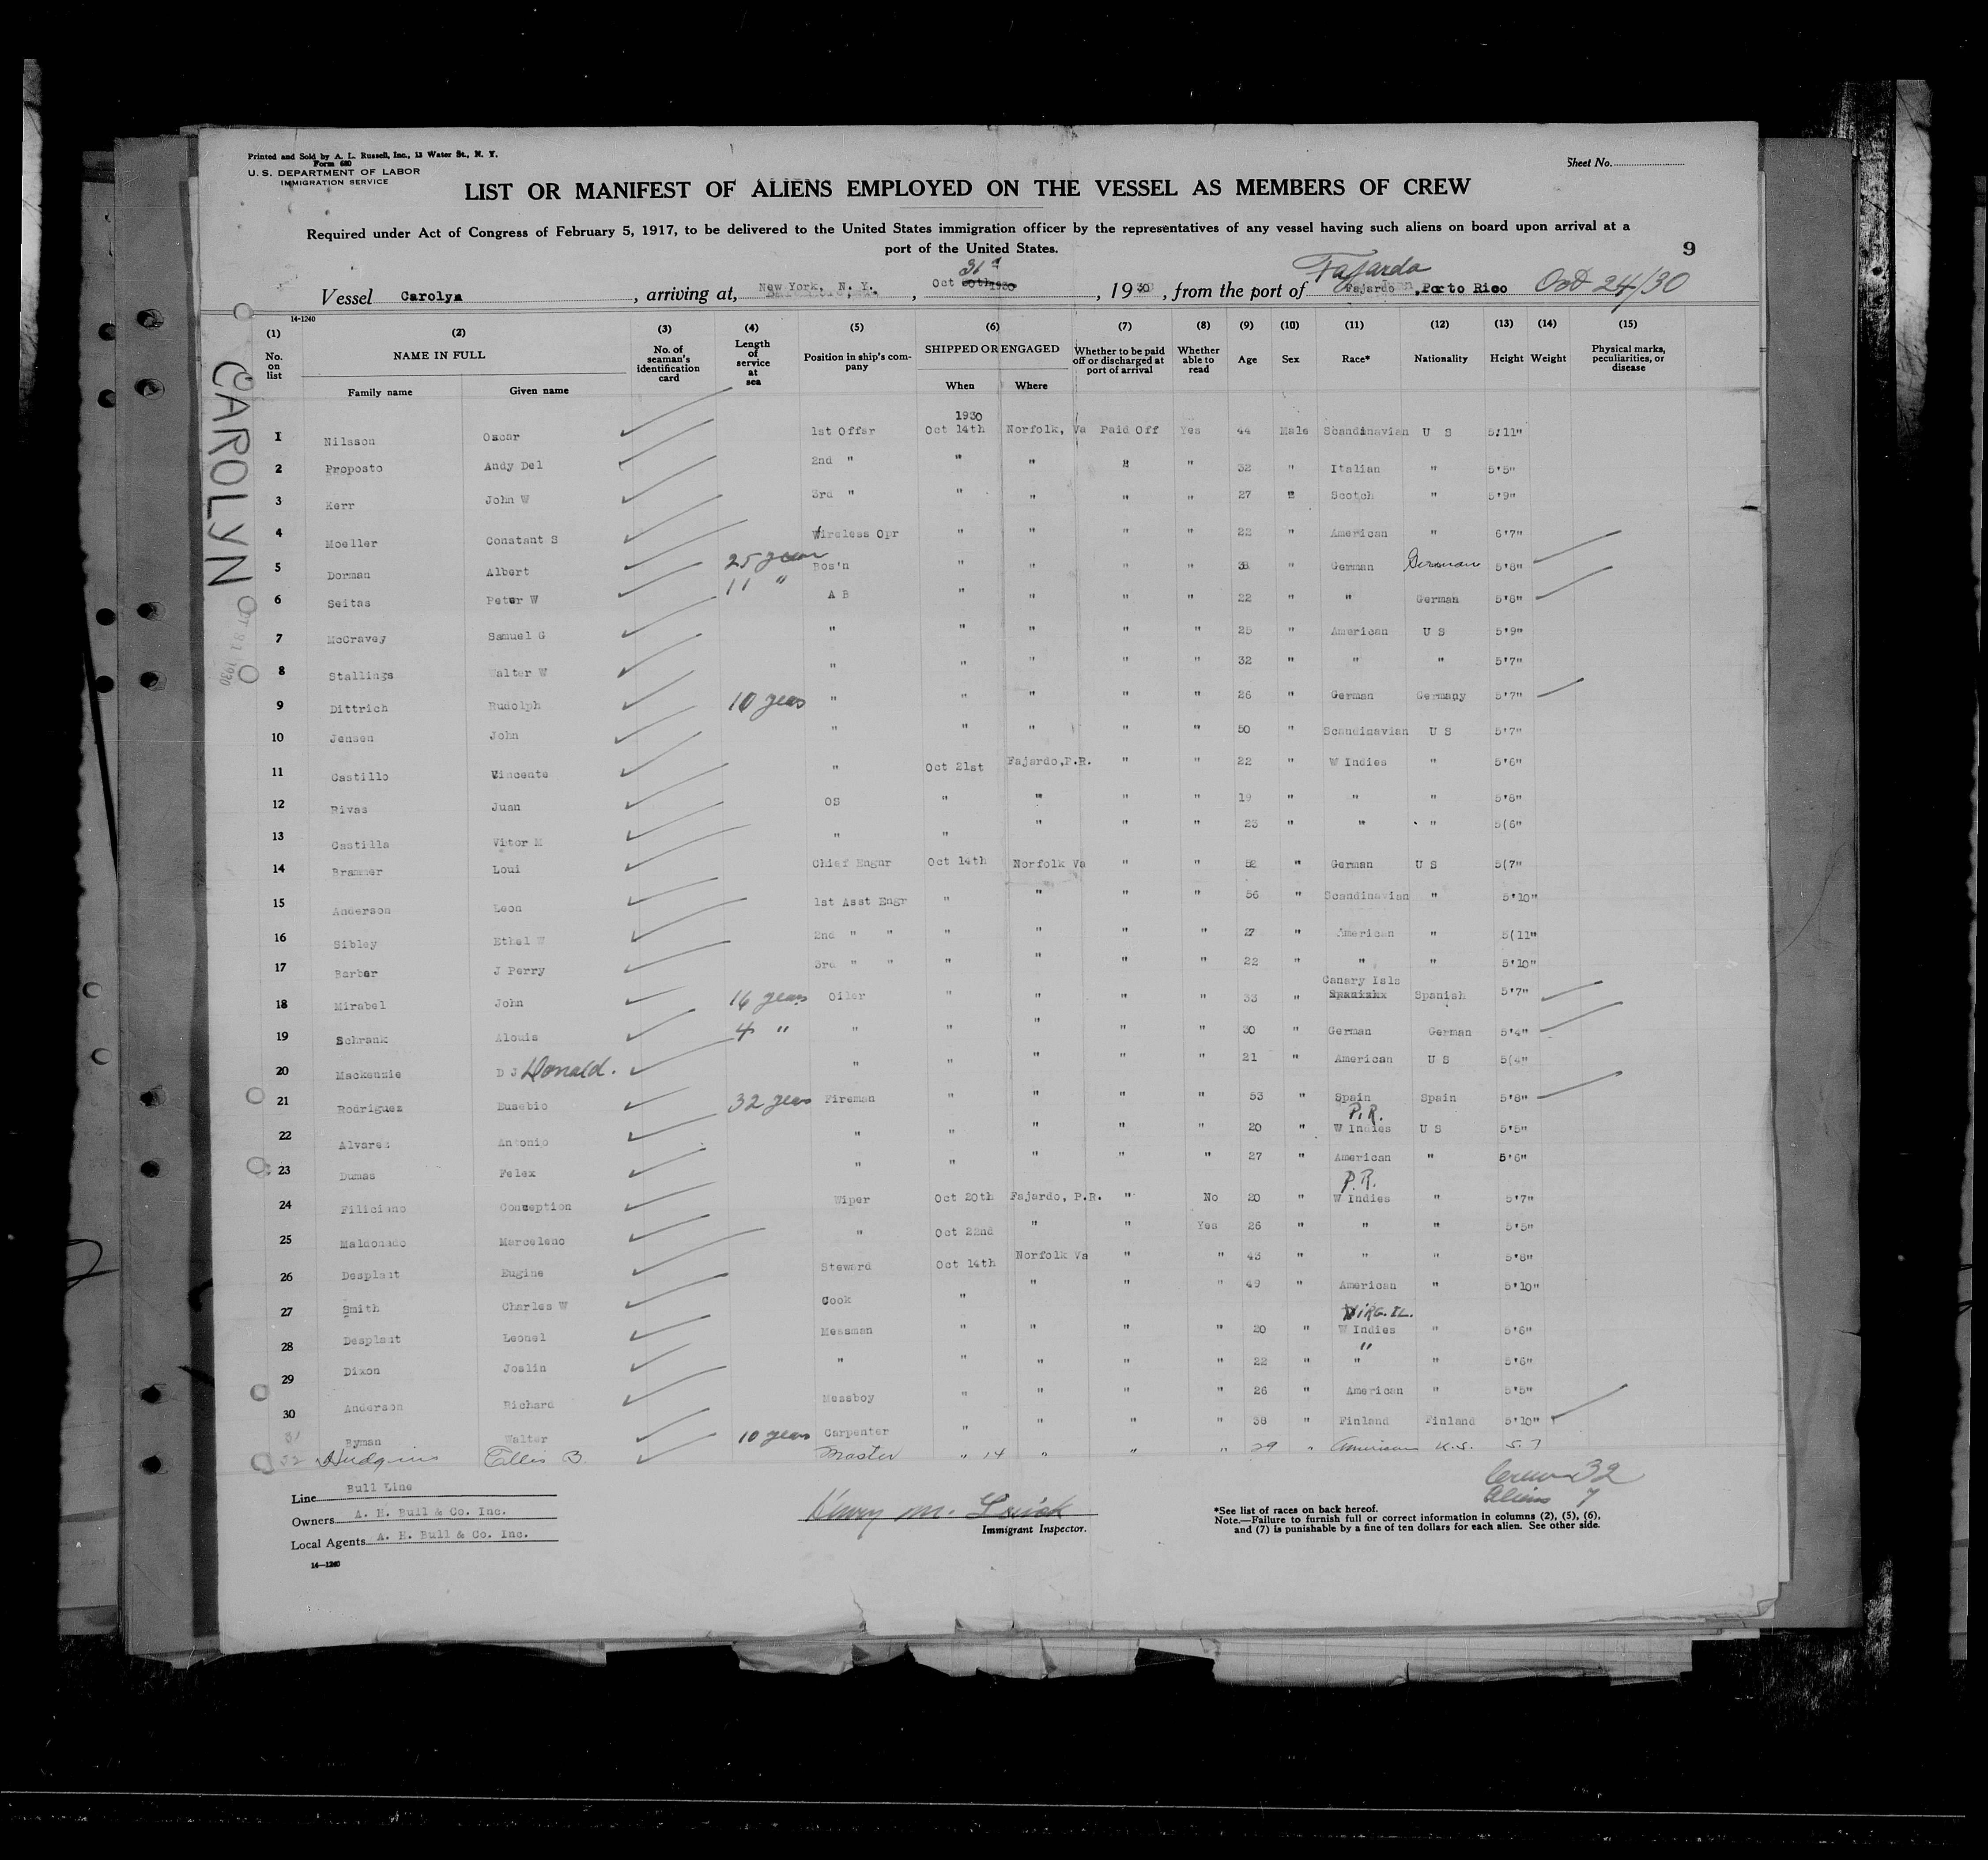 Printed and Sold by A. L. Russell, Inc., 13 Water St., N. Y.
Form 680
U. S. DEPARTMENT OF LABOR
IMMIGRATION SERVICE
Sheet No.
LIST OR MANIFEST OF ALIENS EMPLOYED ON THE VESSEL AS MEMBERS OF CREW
Required under Act of Congress of February 5, 1917, to be delivered to the United States immigration officer by the representatives of any vessel having such aliens on board upon arrival at a
port of the United States.
9
Vessel Carolyn, arriving at, New York, N. Y., Oct 31st 30th1930, 1930, from the port of Fajardo Fajardo, Porto Rico Oct 24/30
14-1240
(1) (2) (3) (4) (5) (6) (7) (8) (9) (10) (11) (12) (13) (14) (15)
No. on list NAME IN FULL No. of seaman's identification card Length of service at sea Position in ship's company SHIPPED OR ENGAGED Whether to be paid off or discharged at port of arrival Whether able to read Age Sex Race* Nationality Height Weight Physical marks, peculiarities, or disease
Family name Given name When Where
CAROLYN
OCT 31 1930
1930
1 Nilsson Oscar 1st Offer Oct 14th Norfolk, Va Paid Off Yes 44 Male Scandinavian U S 5:11"
2 Proposto Andy Del 2nd " " " " " 32 " Italian " 5'5"
3 Kerr John W 3rd " " " " " 27 " Scotch " 5'9"
4 Moeller Constant S Wireless Opr " " " " 22 " American " 6'7"
5 Dorman Albert 25 years Bos'n " " " " 38 " German German 5'8"
6 Seitas Peter W 11 " A B " " " " 22 " " German 5'8"
7 McCravey Samuel G " " " " " 25 " American U S 5'9"
8 Stallings Walter W " " " " " 32 " " " 5'7"
9 Dittrich Rudolph 10 years " " " " " 26 " German Germany 5'7"
10 Jensen John " " " " " 50 " Scandinavian U S 5'7"
11 Castillo Vincente " Oct 21st Fajardo,P.R. " " 22 " W Indies " 5'6"
12 Rivas Juan OS " " " " 19 " " " 5'8"
13 Castilla Vitor M " " " " " 23 " " " 5(6"
14 Brammer Loui Chief Engnr Oct 14th Norfolk Va " " 52 " German U S 5(7"
15 Anderson Leon 1st Asst Engr " " " " 56 " Scandinavian " 5'10"
16 Sibley Ethel W 2nd " " " " " " 27 " American " 5(11"
17 Barber J Perry 3rd " " " " " " 22 " " " 5'10"
18 Mirabel John 16 years Oiler " " " " 33 " Canary Isls Spanish 5'7"
19 Schrank Alouis 4 " " " " " " 30 " German German 5'4"
20 Mackenzie D J Donald. " " " " " 21 " American U S 5(4"
21 Rodriguez Eusebio 32 years Fireman " " " " 53 " Spain Spain 5'8"
22 Alvarez Antonio " " " " " 20 " P.R. W Indies U S 5'5"
23 Dumas Felex " " " " " 27 " American " 5'6"
24 Filiciano Conception Wiper Oct 20th Fajardo, P.R. " No 20 " P.R. W Indies " 5'7"
25 Maldonado Marceleno " Oct 22nd " " Yes 26 " " " 5'5"
26 Desplant Eugine Steward Oct 14th Norfolk Va " " 43 " " " 5'8"
27 Smith Charles W Cook " " " " 49 " American " 5'10"
28 Desplant Leonel Messman " " " " 20 " VIRG. IL. W Indies " 5'6"
29 Dixon Joslin " " " " " 22 " " " 5'6"
30 Anderson Richard Messboy " " " " 26 " American " 5'5"
31 Ryman Walter 10 years Carpenter " " " " 38 " Finland Finland 5'10"
32 Hudgins Ellis B. Master " 14 " " " 29 " American U.S. 5.7
Crew 32
Aliens 7
Line Bull Line
Owners A. H. Bull & Co. Inc.
Local Agents A. H. Bull & Co. Inc.
14—1240
Henry M.
Immigrant Inspector.
*See list of races on back hereof.
Note.—Failure to furnish full or correct information in columns (2), (5), (6),
and (7) is punishable by a fine of ten dollars for each alien. See other side.